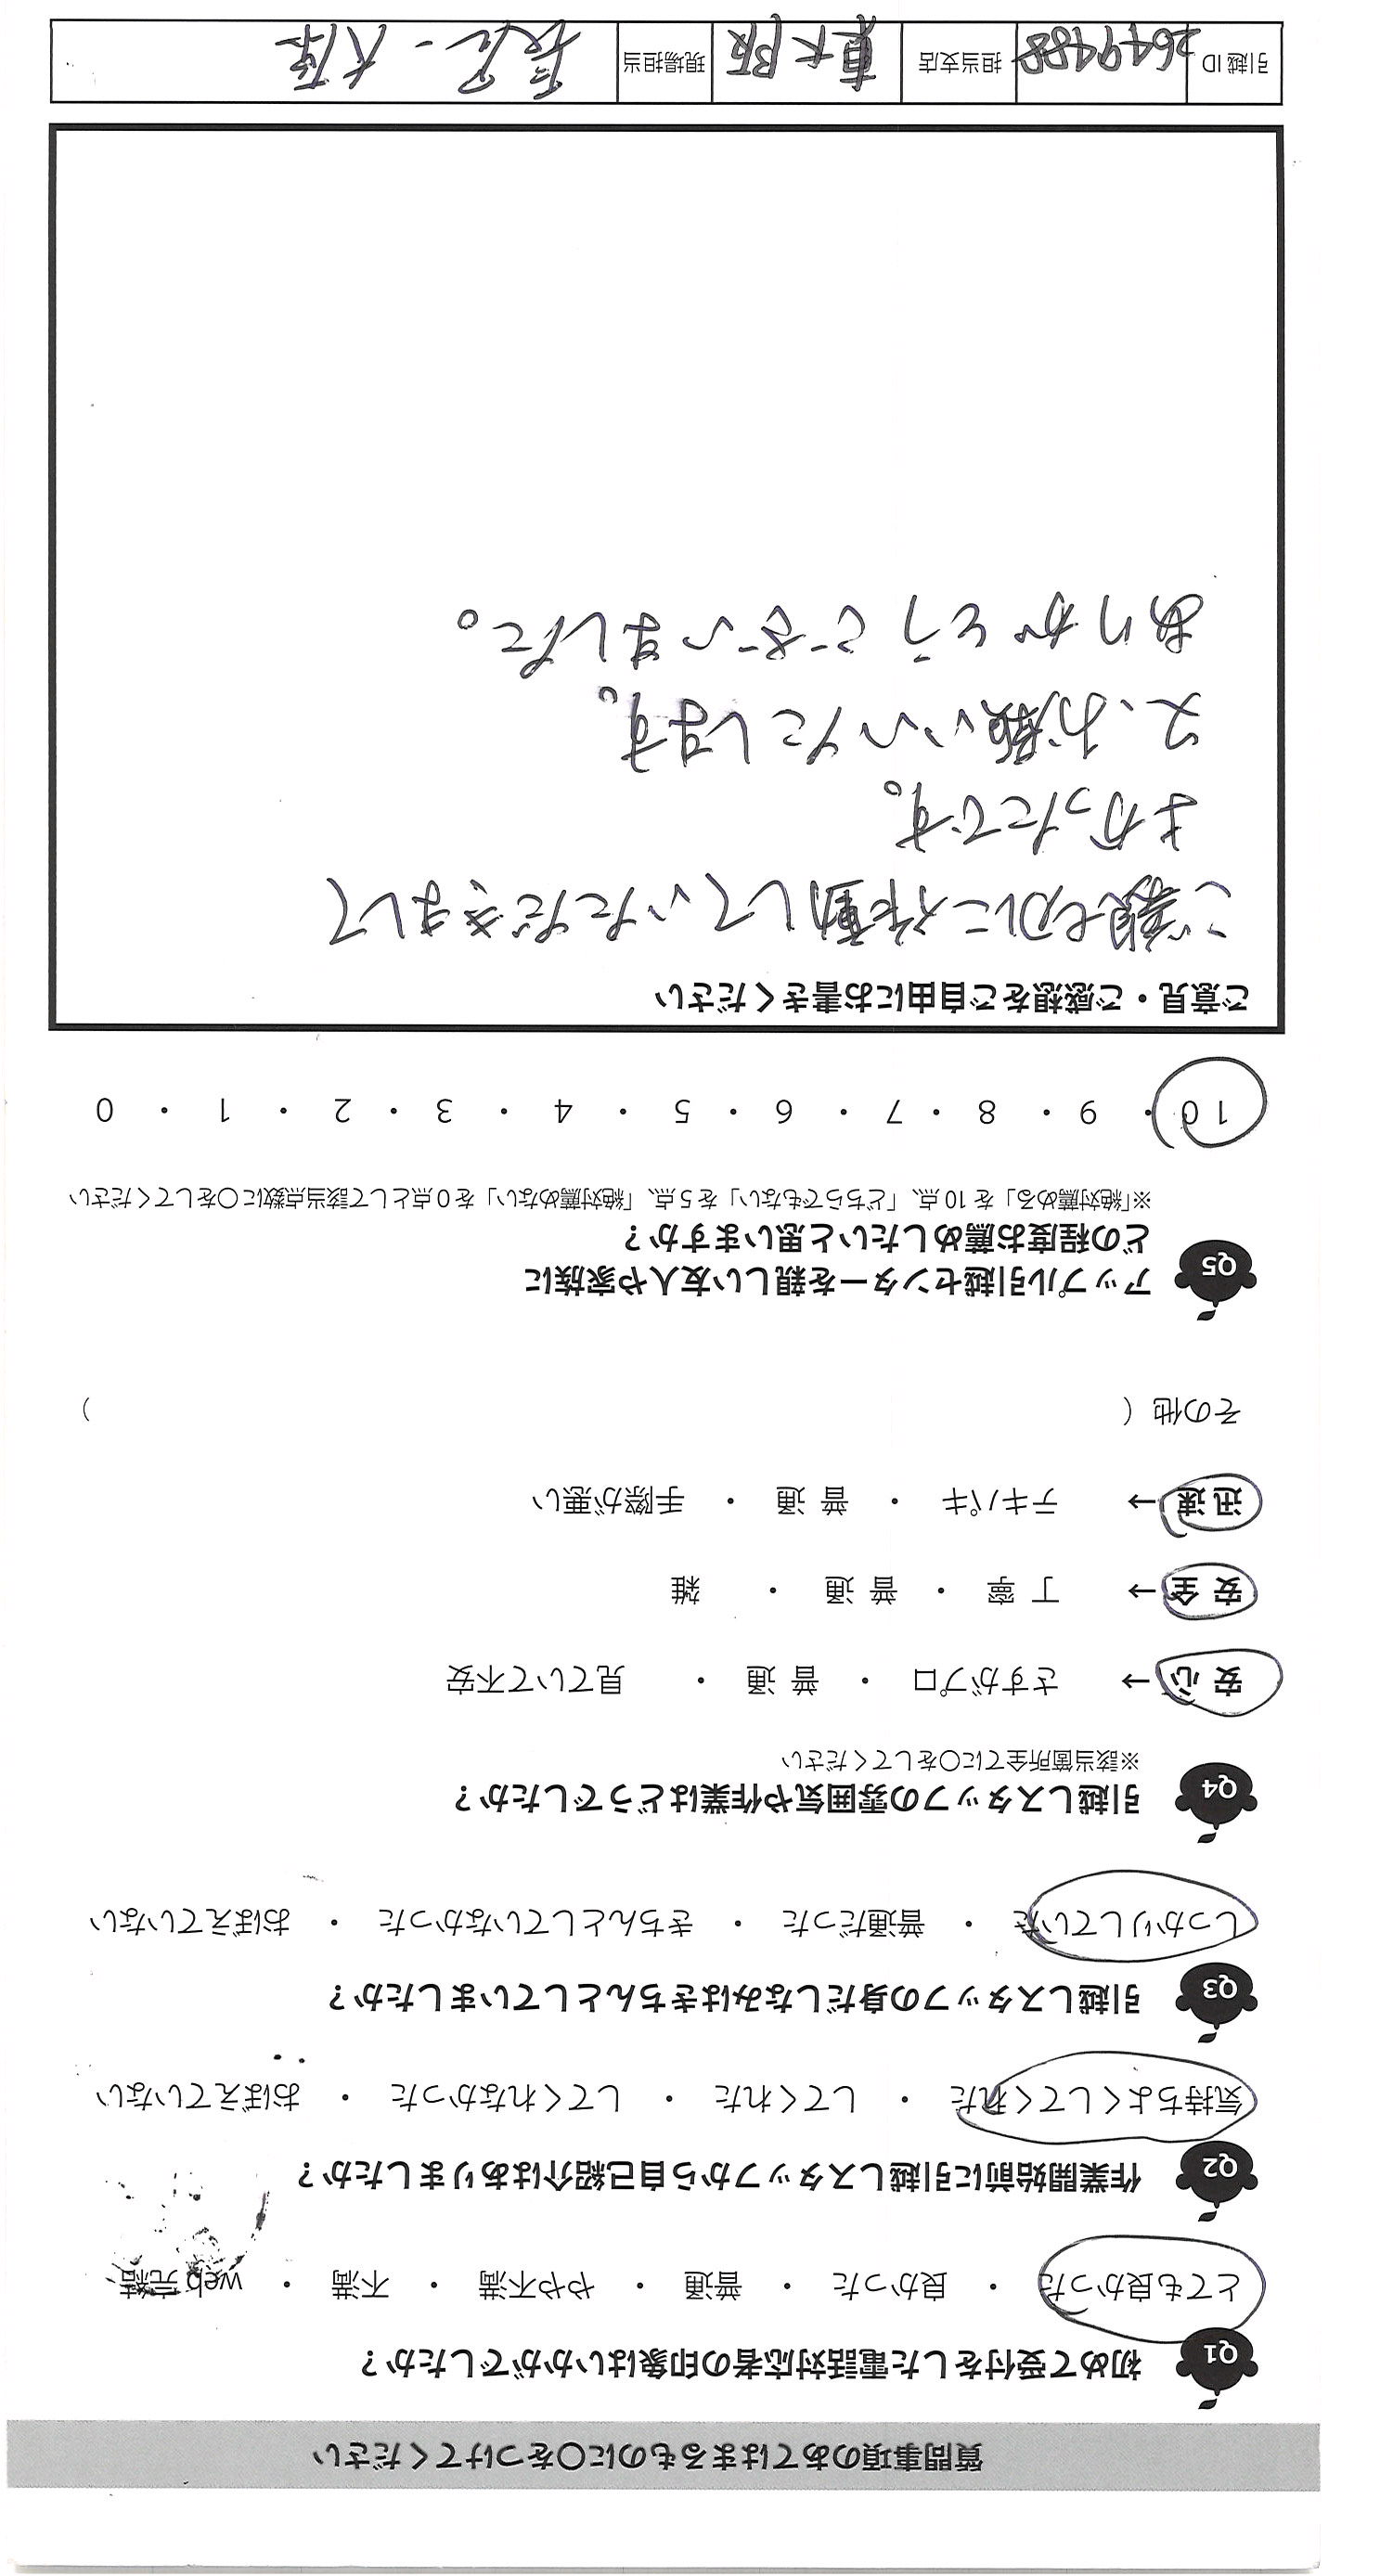 質問事項のあてはまるものに○をつけてください
Q1 初めて受付をした電話対応者の印象はいかがでしたか？
とても良かった ・ 良かった ・ 普通 ・ やや不満 ・ 不満 ・ web完結
Q2 作業開始前に引越しスタッフから自己紹介はありましたか？
気持ちよくしてくれた ・ してくれた ・ してくれなかった ・ おぼえていない
Q3 引越しスタッフの身だしなみはきちんとしていましたか？
しっかりしていた ・ 普通だった ・ きちんとしていなかった ・ おぼえていない
Q4 引越しスタッフの雰囲気や作業はどうでしたか？
※該当箇所全てに○をしてください
安心 → さすがプロ ・ 普通 ・ 見ていて不安
安全 → 丁寧 ・ 普通 ・ 雑
迅速 → テキパキ ・ 普通 ・ 手際が悪い
その他（ ）
Q5 アップル引越センターを親しい友人や家族に
どの程度お薦めしたいと思いますか？
※「絶対薦める」を10点、「どちらでもない」を5点、「絶対薦めない」を0点として該当点数に○をしてください
10 ・ 9 ・ 8 ・ 7 ・ 6 ・ 5 ・ 4 ・ 3 ・ 2 ・ 1 ・ 0
ご意見・ご感想をご自由にお書きください
ご親切に作動していただきまして
よかったです。
又、お願いいたします。
ありがとうございました。
引越ID 2649488 担当支店 東大阪 現場担当